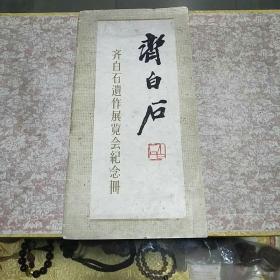 齊白石
齐白石遺作展覽会紀念冊